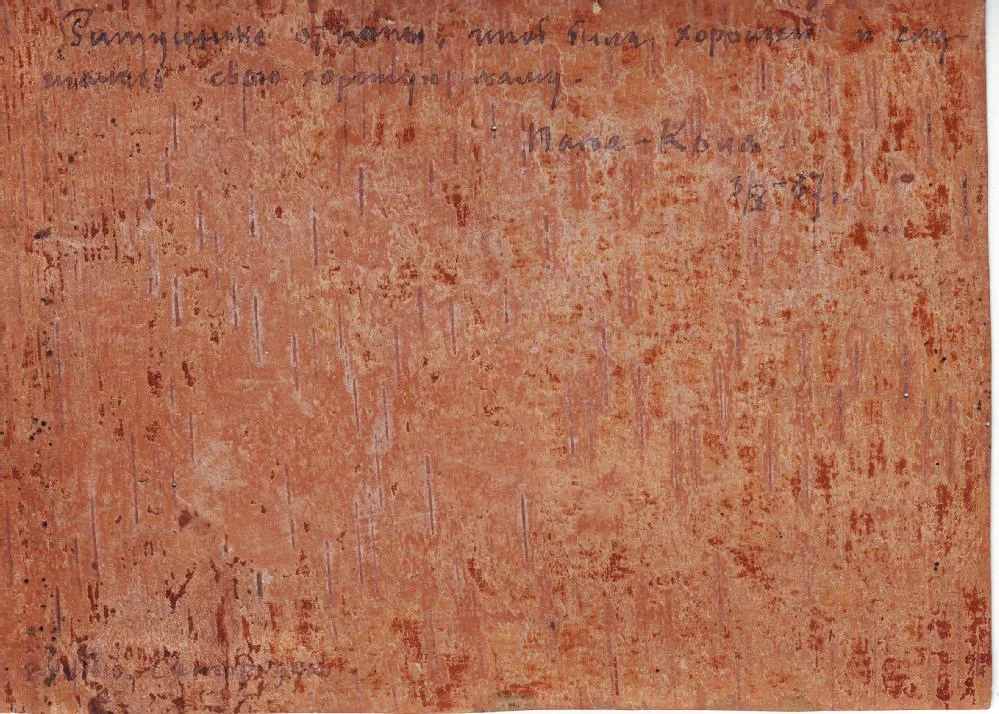 Ритусеньке от папы, чтоб была хорошей и слу-
шалась свою хорошую маму.
Папа-Коля
3/X-37 г.